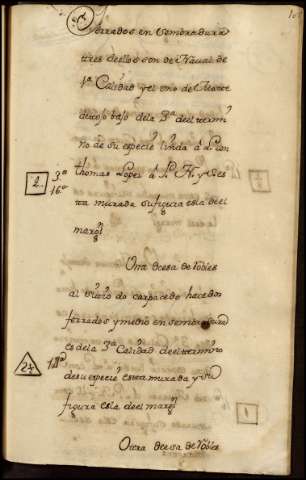 ferrados en sembradura
tres dellos son de Naval de
1ª Calidad y el uno de Monte
de la 3ª del termi
no de su especie linda a L. con
thomas Lopez a P. N. y Ves
ta murada su figura es la del
margⁿ
2 3ª
16º
Una deesa de robles
al sitio do carpacedo hace dos
ferrados y medio en sembradura
es de la 3ª Calidad del termino
de su especie esta murada y su
figura es la del margⁿ
24
1
Otra deesa de robles